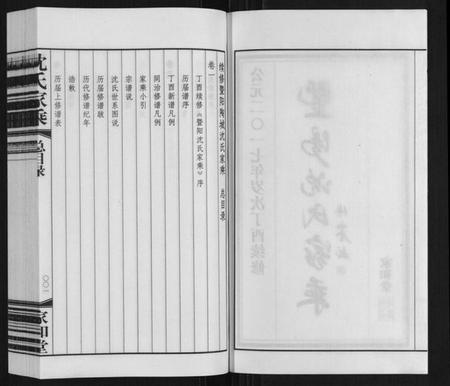 公元二〇一七年岁次丁酉续修
暨阳沈氏家乘
家和堂
续修暨阳陶城沈氏家乘 总目录
卷一
丁酉续修《暨阳沈氏家乘》序
历届谱序
丁酉新谱凡例
同治修谱凡例
家乘小引
宗谱说
沈氏世系图说
历届修谱跋
历代修谱纪年
诰敕
历届上修谱表
沈氏家乘
总目录
〇〇一
家和堂